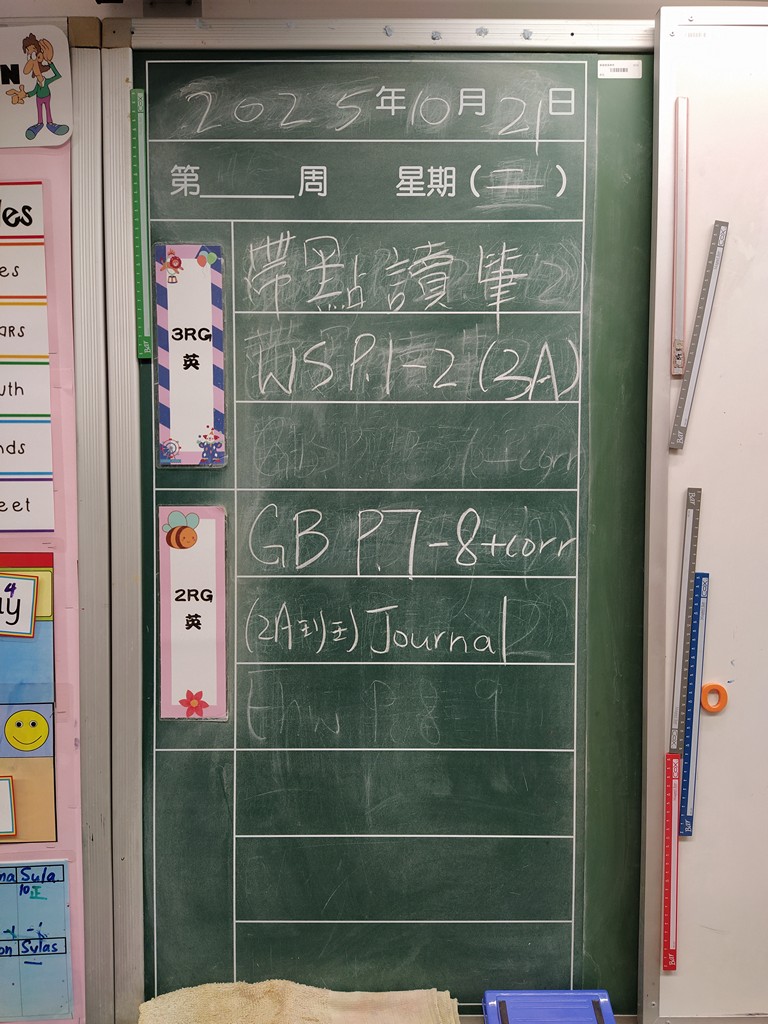 2025年10月21日
第____周 星期（二）
3RG
英
帶點讀筆
WS P.1-2 (3A)
+corr
2RG
英
GB P.7-8+corr
(2A 到 王) Journal
Ehw P.8 9
N
les
es
ars
uth
nds
eet
4
ay
na Sula
10 正
on Sylas